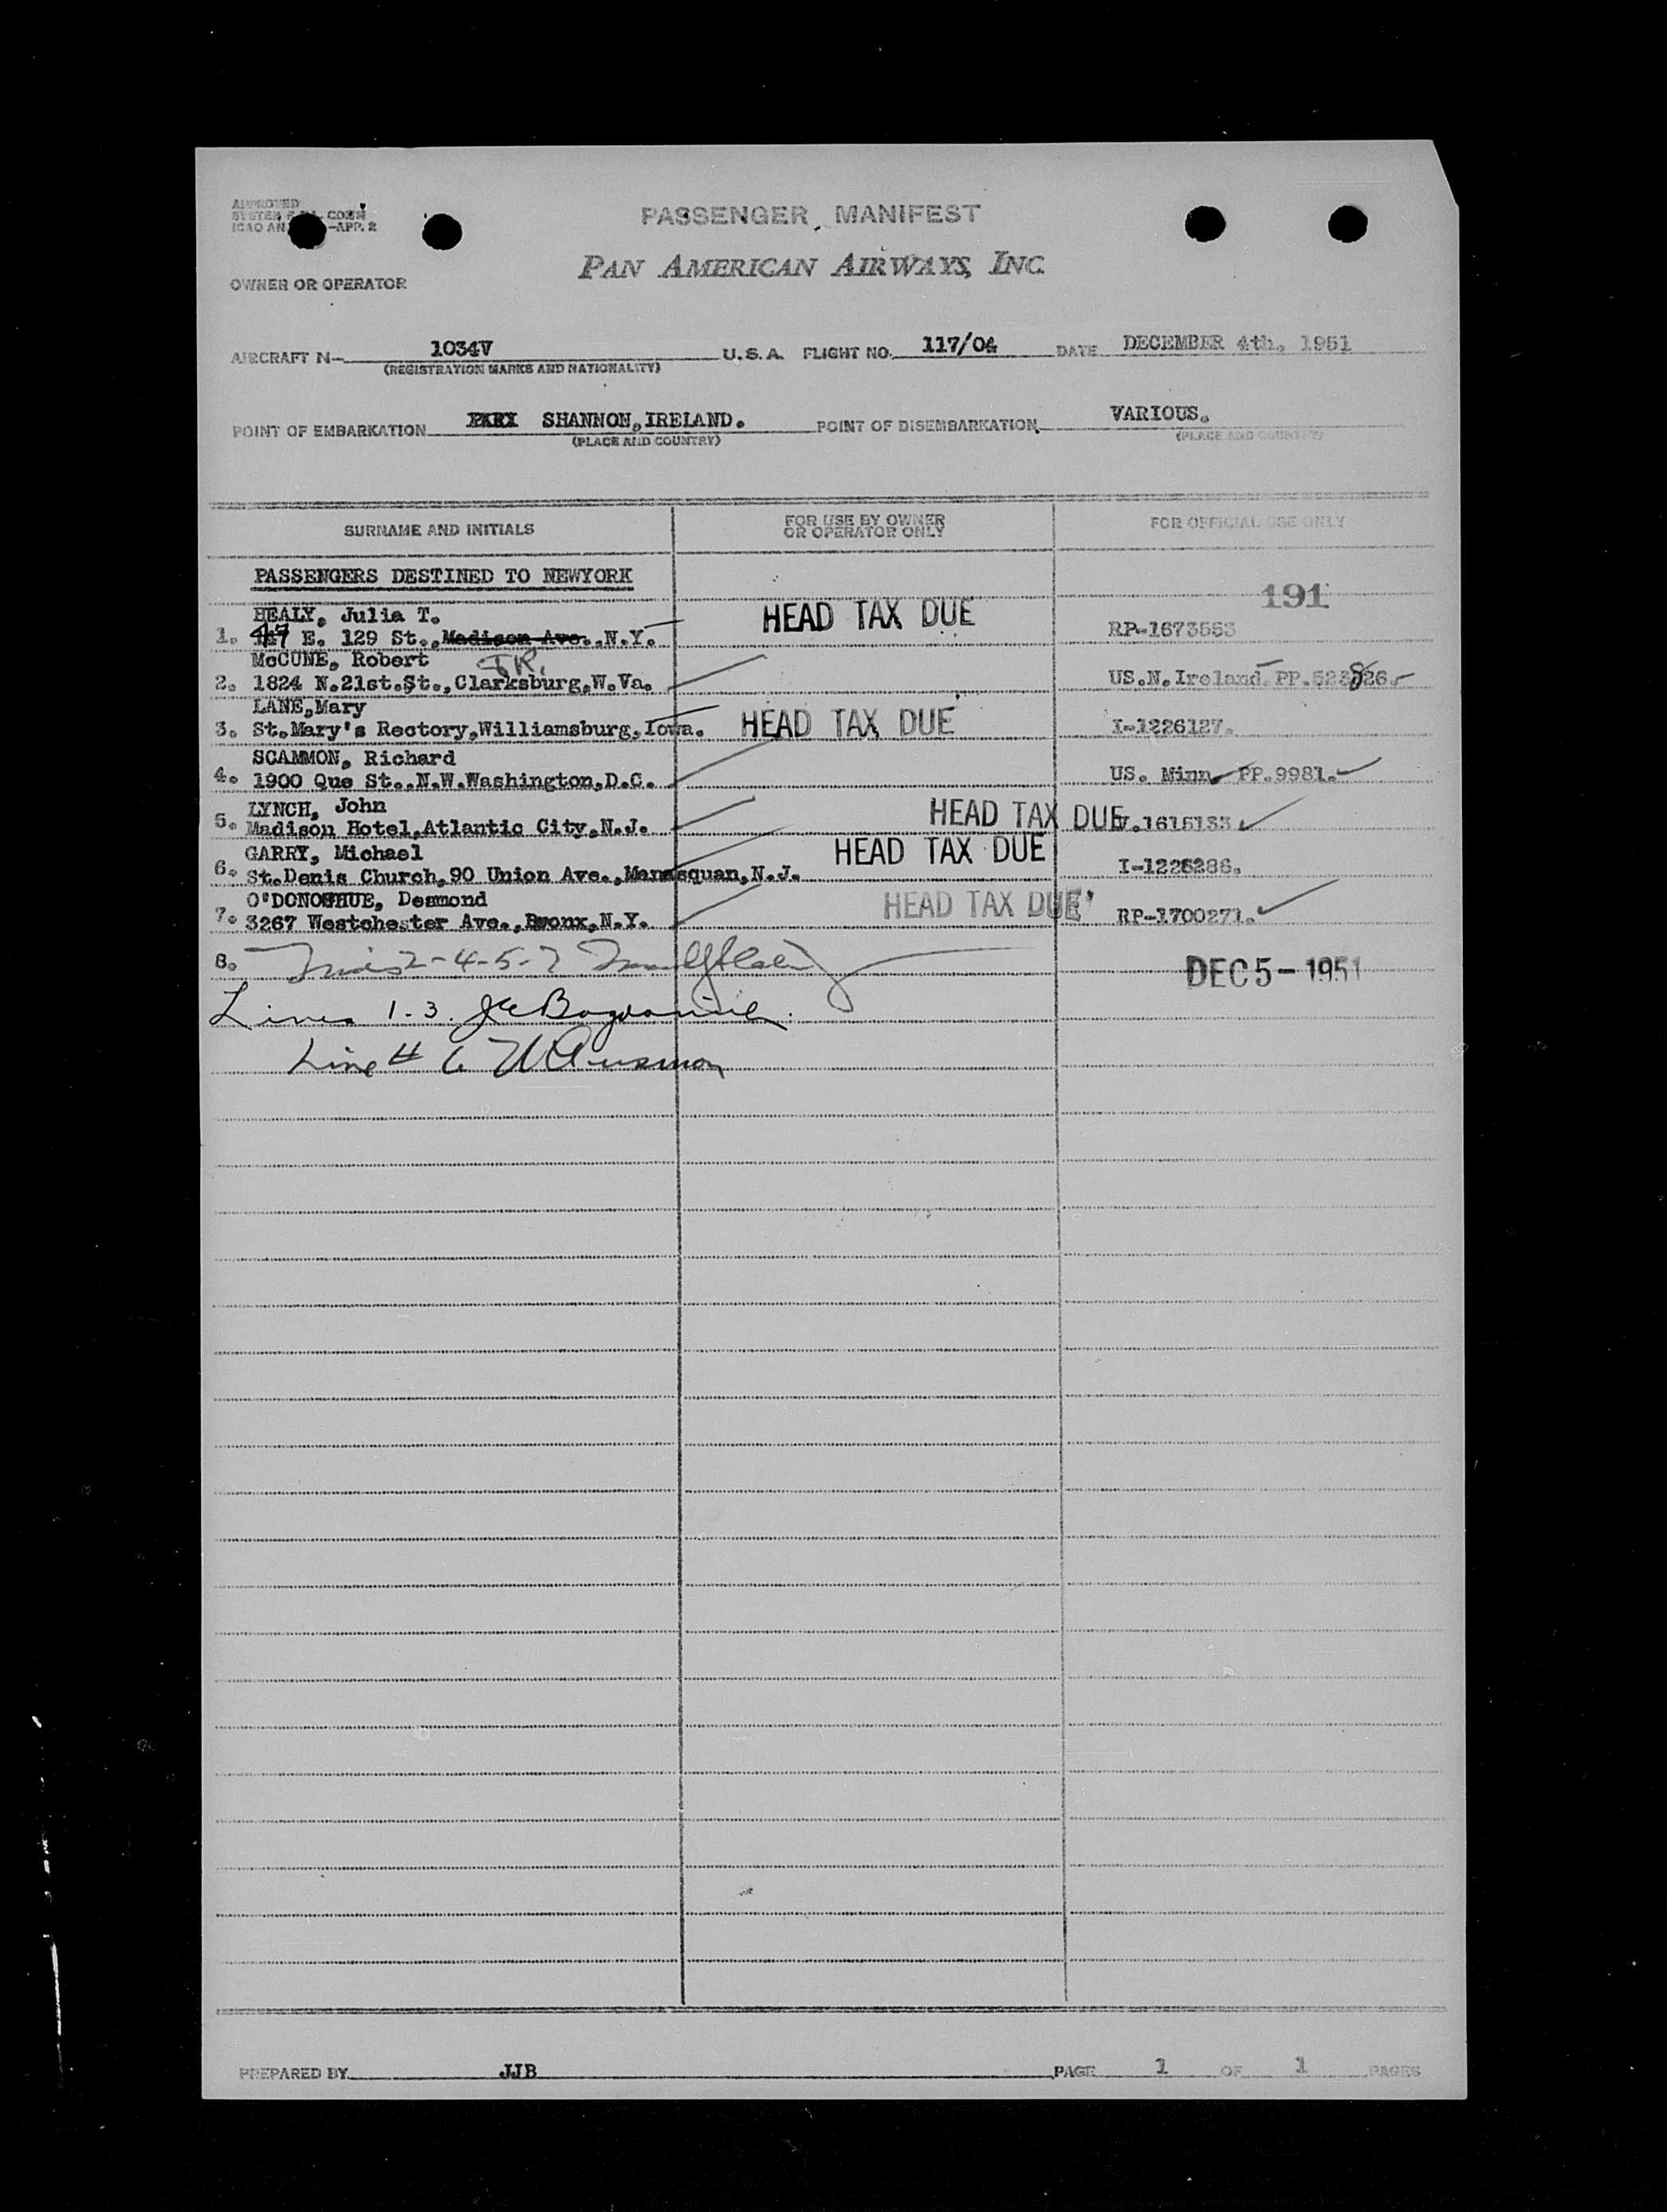 APPROVED
ICAO AN -APP. 2
PASSENGER MANIFEST
PAN AMERICAN AIRWAYS, INC.
OWNER OR OPERATOR
AIRCRAFT N- 1034V U.S.A. FLIGHT NO. 117/04 DATE DECEMBER 4th. 1951
(REGISTRATION MARKS AND NATIONALITY)
POINT OF EMBARKATION SHANNON, IRELAND. POINT OF DISEMBARKATION VARIOUS.
(PLACE AND COUNTRY) (PLACE AND COUNTRY)
SURNAME AND INITIALS FOR USE BY OWNER OR OPERATOR ONLY FOR OFFICIAL USE ONLY
PASSENGERS DESTINED TO NEWYORK
191
HEALY, Julia T. HEAD TAX DUE
1. 47 E. 129 St., Madison Ave., N.Y. RP-1673563
McCUNE, Robert JR.
2. 1824 N.21st.St., Clarksburg,W.Va. US.N.Ireland PP.523826
LANE,Mary
3. St.Mary's Rectory,Williamsburg,Iowa. HEAD TAX DUE I-1226127.
SCAMMON, Richard
4. 1900 Que St.,N.W.Washington,D.C. US. Minn. PP.9981.
LYNCH, John HEAD TAX DUE
5. Madison Hotel,Atlantic City,N.J. 1615133
GARRY, Michael HEAD TAX DUE
6. St.Denis Church,90 Union Ave.,Manasquan,N.J. I-1226286.
O'DONOGHUE, Desmond HEAD TAX DUE
7. 3267 Westchester Ave.,Bronx,N.Y. RP-1700271.
8. 2-4-5-7
DEC 5 - 1951
Lines 1-3.
Line # 6
PREPARED BY JJB PAGE 1 OF 1 PAGES